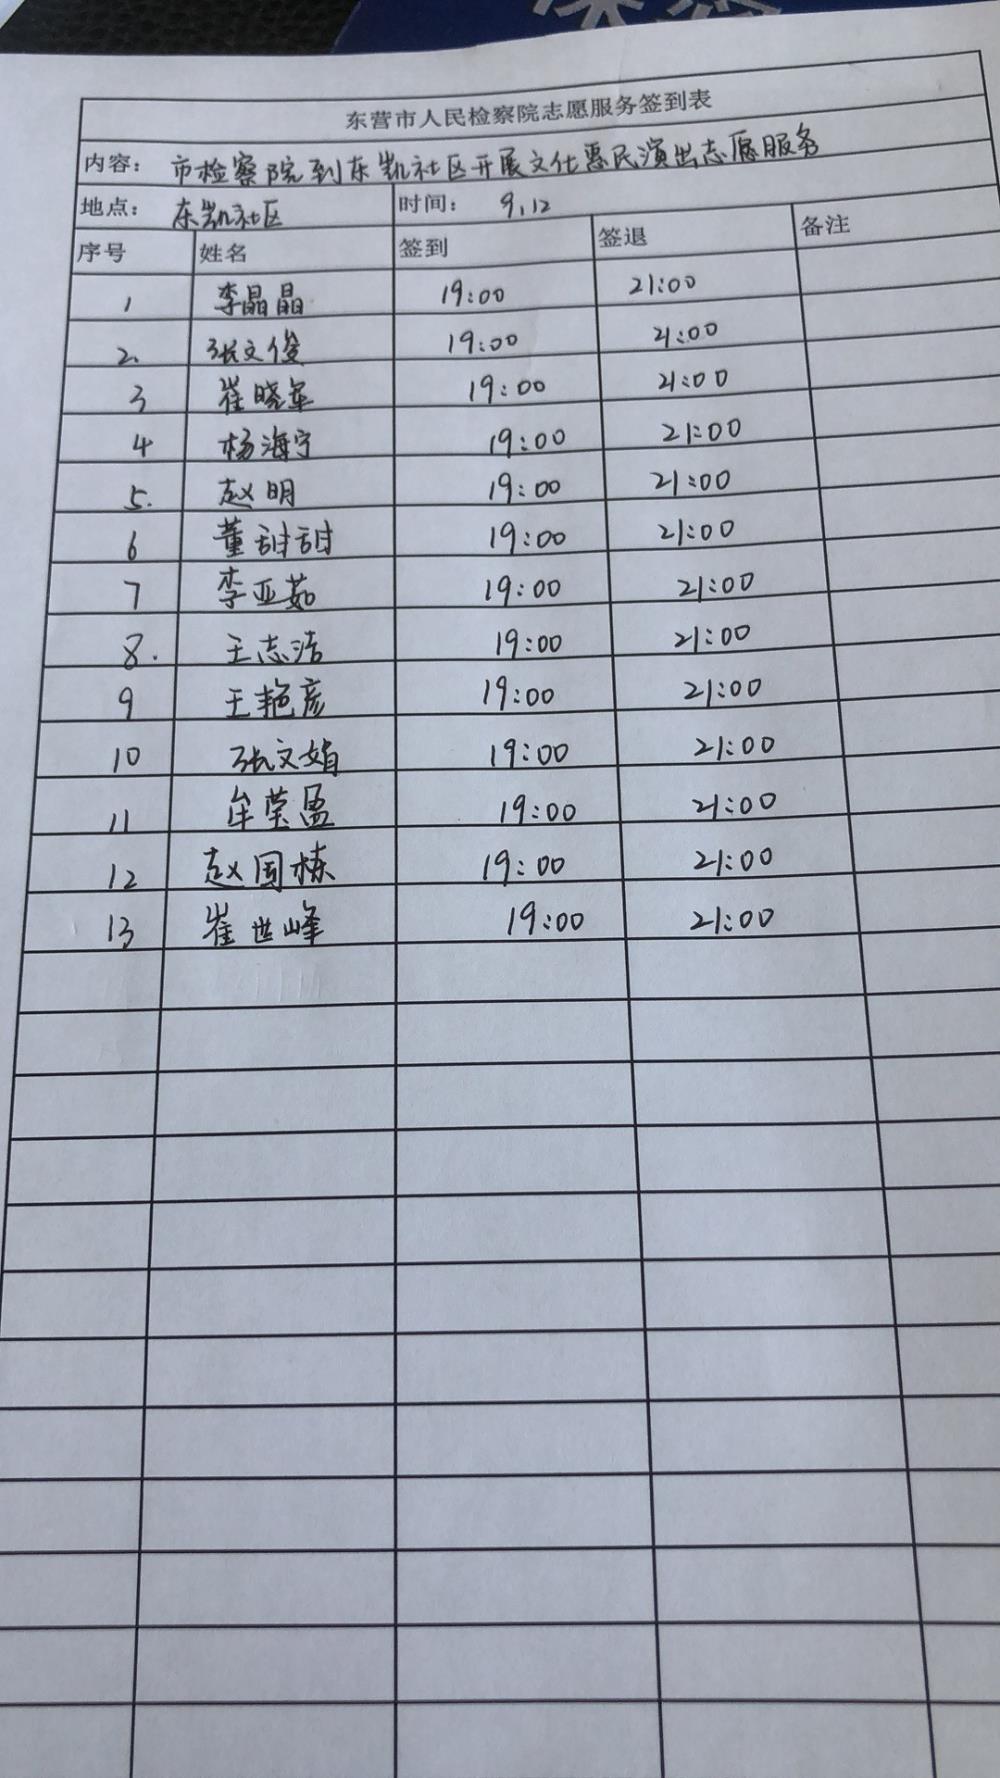 东营市人民检察院志愿服务签到表
内容: 市检察院到东凯社区开展文化惠民演出志愿服务
地点: 东凯社区 时间: 9.12
序号 姓名 签到 签退 备注
1 李晶晶 19:00 21:00
2. 张文俊 19:00 21:00
3 崔晓军 19:00 21:00
4 杨海宁 19:00 21:00
5. 赵明 19:00 21:00
6 董甜甜 19:00 21:00
7 李亚茹 19:00 21:00
8. 王志浩 19:00 21:00
9 王艳彦 19:00 21:00
10 张文娟 19:00 21:00
11 牟莹盈 19:00 21:00
12 赵国栋 19:00 21:00
13 崔世峰 19:00 21:00